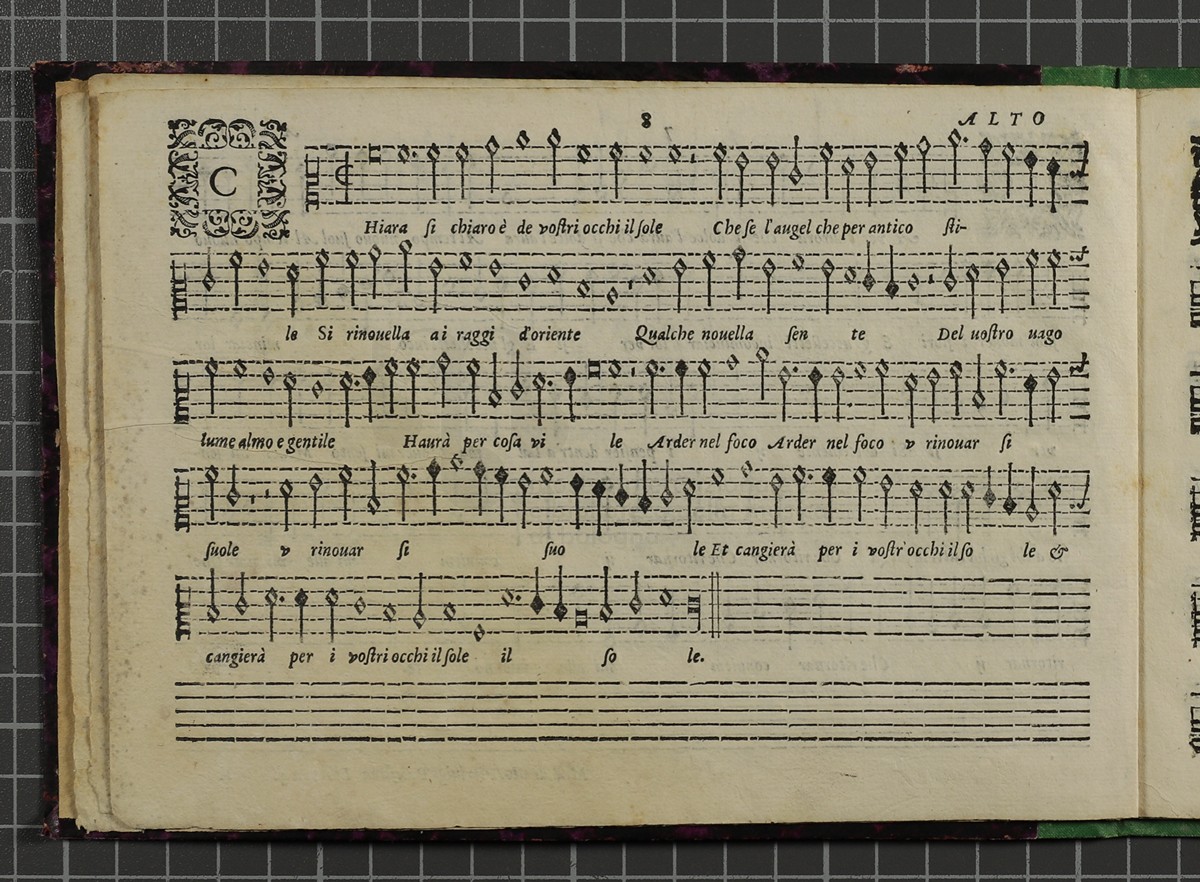 8 ALTO
C
Hiara ſi chiaro è de voſtri occhi il ſole Che ſe l'augel che per antico ſti-
le Si rinouella a i raggi d'oriente Qualche nouella ſen te Del uoſtro uago
lume almo e gentile Haurà per coſa vi le Arder nel foco Arder nel foco v rinouar ſi
ſuole v rinouar ſi ſuo le Et cangierà per i voſtr'occhi il ſo le &
cangierà per i voſtri occhi il ſole il ſo le.